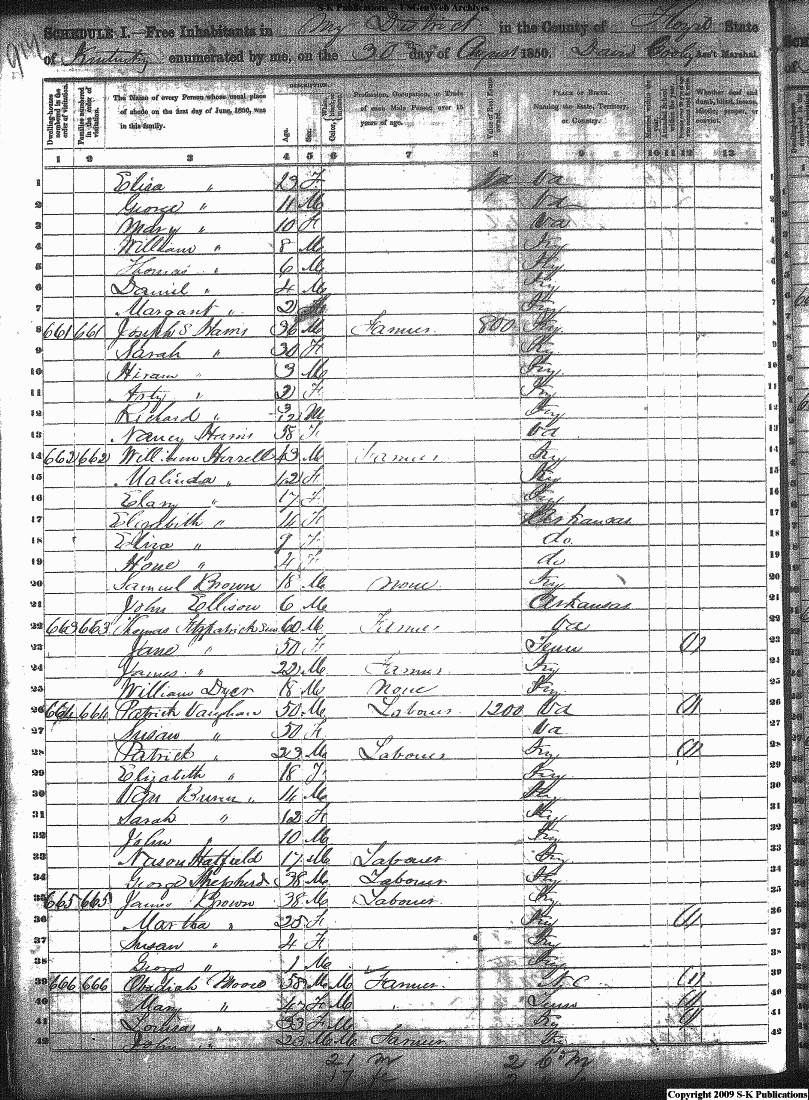 S-K Publications - USGenWeb Archives
SCHEDULE I.—Free Inhabitants in My District in the County of Floyd State
of Kentucky enumerated by me, on the 30 day of August 1850. David Ass't Marshal.
Dwelling-houses numbered in the order of visitation.
Families numbered in the order of visitation.
The Name of every Person whose usual place of abode on the first day of June, 1850, was in this family.
DESCRIPTION.
Age.
Sex.
Profession, Occupation, or Trade of each Male Person over 15 years of age.
Value of Real Estate owned.
PLACE OF BIRTH.
Naming the State, Territory, or Country.
Whether deaf and dumb, blind, insane, idiotic, pauper, or convict.
1 2 3 4 5 6 7 8 9 10 11 12 13
1 Eliza " 13 F Va
2 George " 11 M Va
3 Mary " 10 F Va
4 William " 8 M Ky
5 Thomas " 6 M Ky
6 Daniel " 4 M Ky
7 Margaret " 2 Ky
8 661 661 Joseph S Harris 36 M Farmer 800 Ky
9 Sarah " 30 F Ky
10 Hiram " 3 M Ky
11 " 2 F Ky
12 Richard " 3/12 M Ky
13 Nancy Harris 58 F Va
14 662 662 William Herrell 43 M Farmer Ky
15 Malinda " 42 F Ky
16 " 17 F Ky
17 Elizabeth " 14 F Arkansas
18 Eliza " 9 F do
19 " 4 F do
20 Samuel Brown 18 M none Ky
21 John Ellison 6 M Arkansas
22 663 663 Thomas Fitzpatrick Sen 60 M Farmer Va
23 Jane " 50 F Tenn (1)
24 James " 22 M Farmer Ky
25 William Dyer 18 M None Ky
26 664 664 Patrick Vaughan 50 M Labourer 1200 Va (1)
27 Susan " 50 F Va
28 Patrick " 23 M Labourer Ky (1)
29 Elizabeth " 18 F Ky
30 " 14 M Ky
31 Sarah " 12 F Ky
32 John " 10 M Ky
33 Hatfield 17 M Labourer Ky
34 George Shepherd 38 M Labourer Ky
35 665 665 James Brown 38 M Labourer Ky
36 Martha " 25 F Ky (1)
37 Susan " 4 F Ky
38 George " 1 M Ky
39 666 666 Obadiah Moore 58 M M Farmer N.C. (1)
40 Mary " 47 F M " Tenn (1)
41 Louisa " 33 F M Ky (1)
42 John " 23 M M Farmer Ky
21 M
17
Copyright 2009 S-K Publications